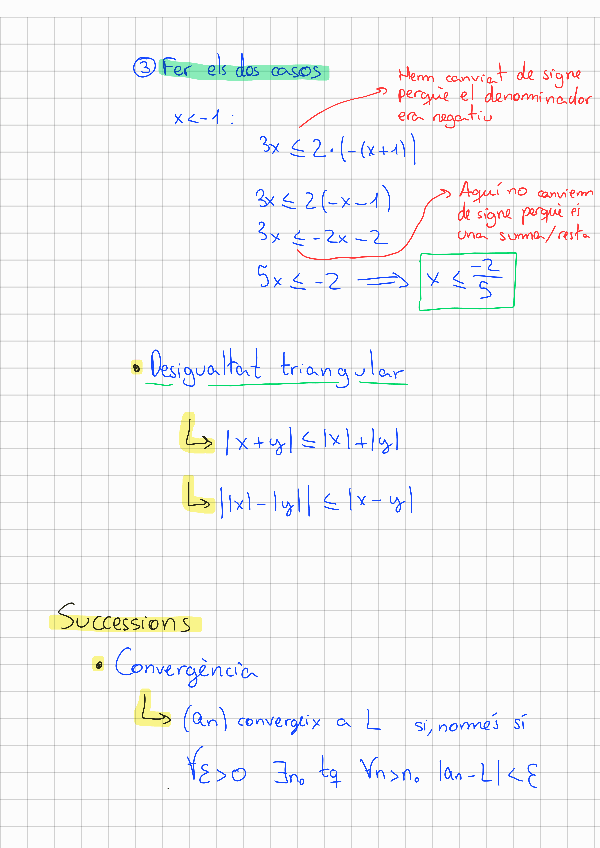 ③ Fer els dos casos
Hem canviat de signe
perquè el denominador
era negatiu
x<-1:
3x ≤ 2·(-(x+1))
3x ≤ 2(-x-1)
Aquí no canviem
de signe perquè és
una suma/resta
3x ≤ -2x-2
5x ≤ -2 ⟹ x ≤ -2/5
• Desigualtat triangular
↳ |x+y| ≤ |x|+|y|
↳ ||x|-|y|| ≤ |x-y|
Successions
• Convergència
↳ (an) convergeix a L si, només sí
∀ε>0 ∃n₀ tq ∀n>n₀ |an-L|<ε